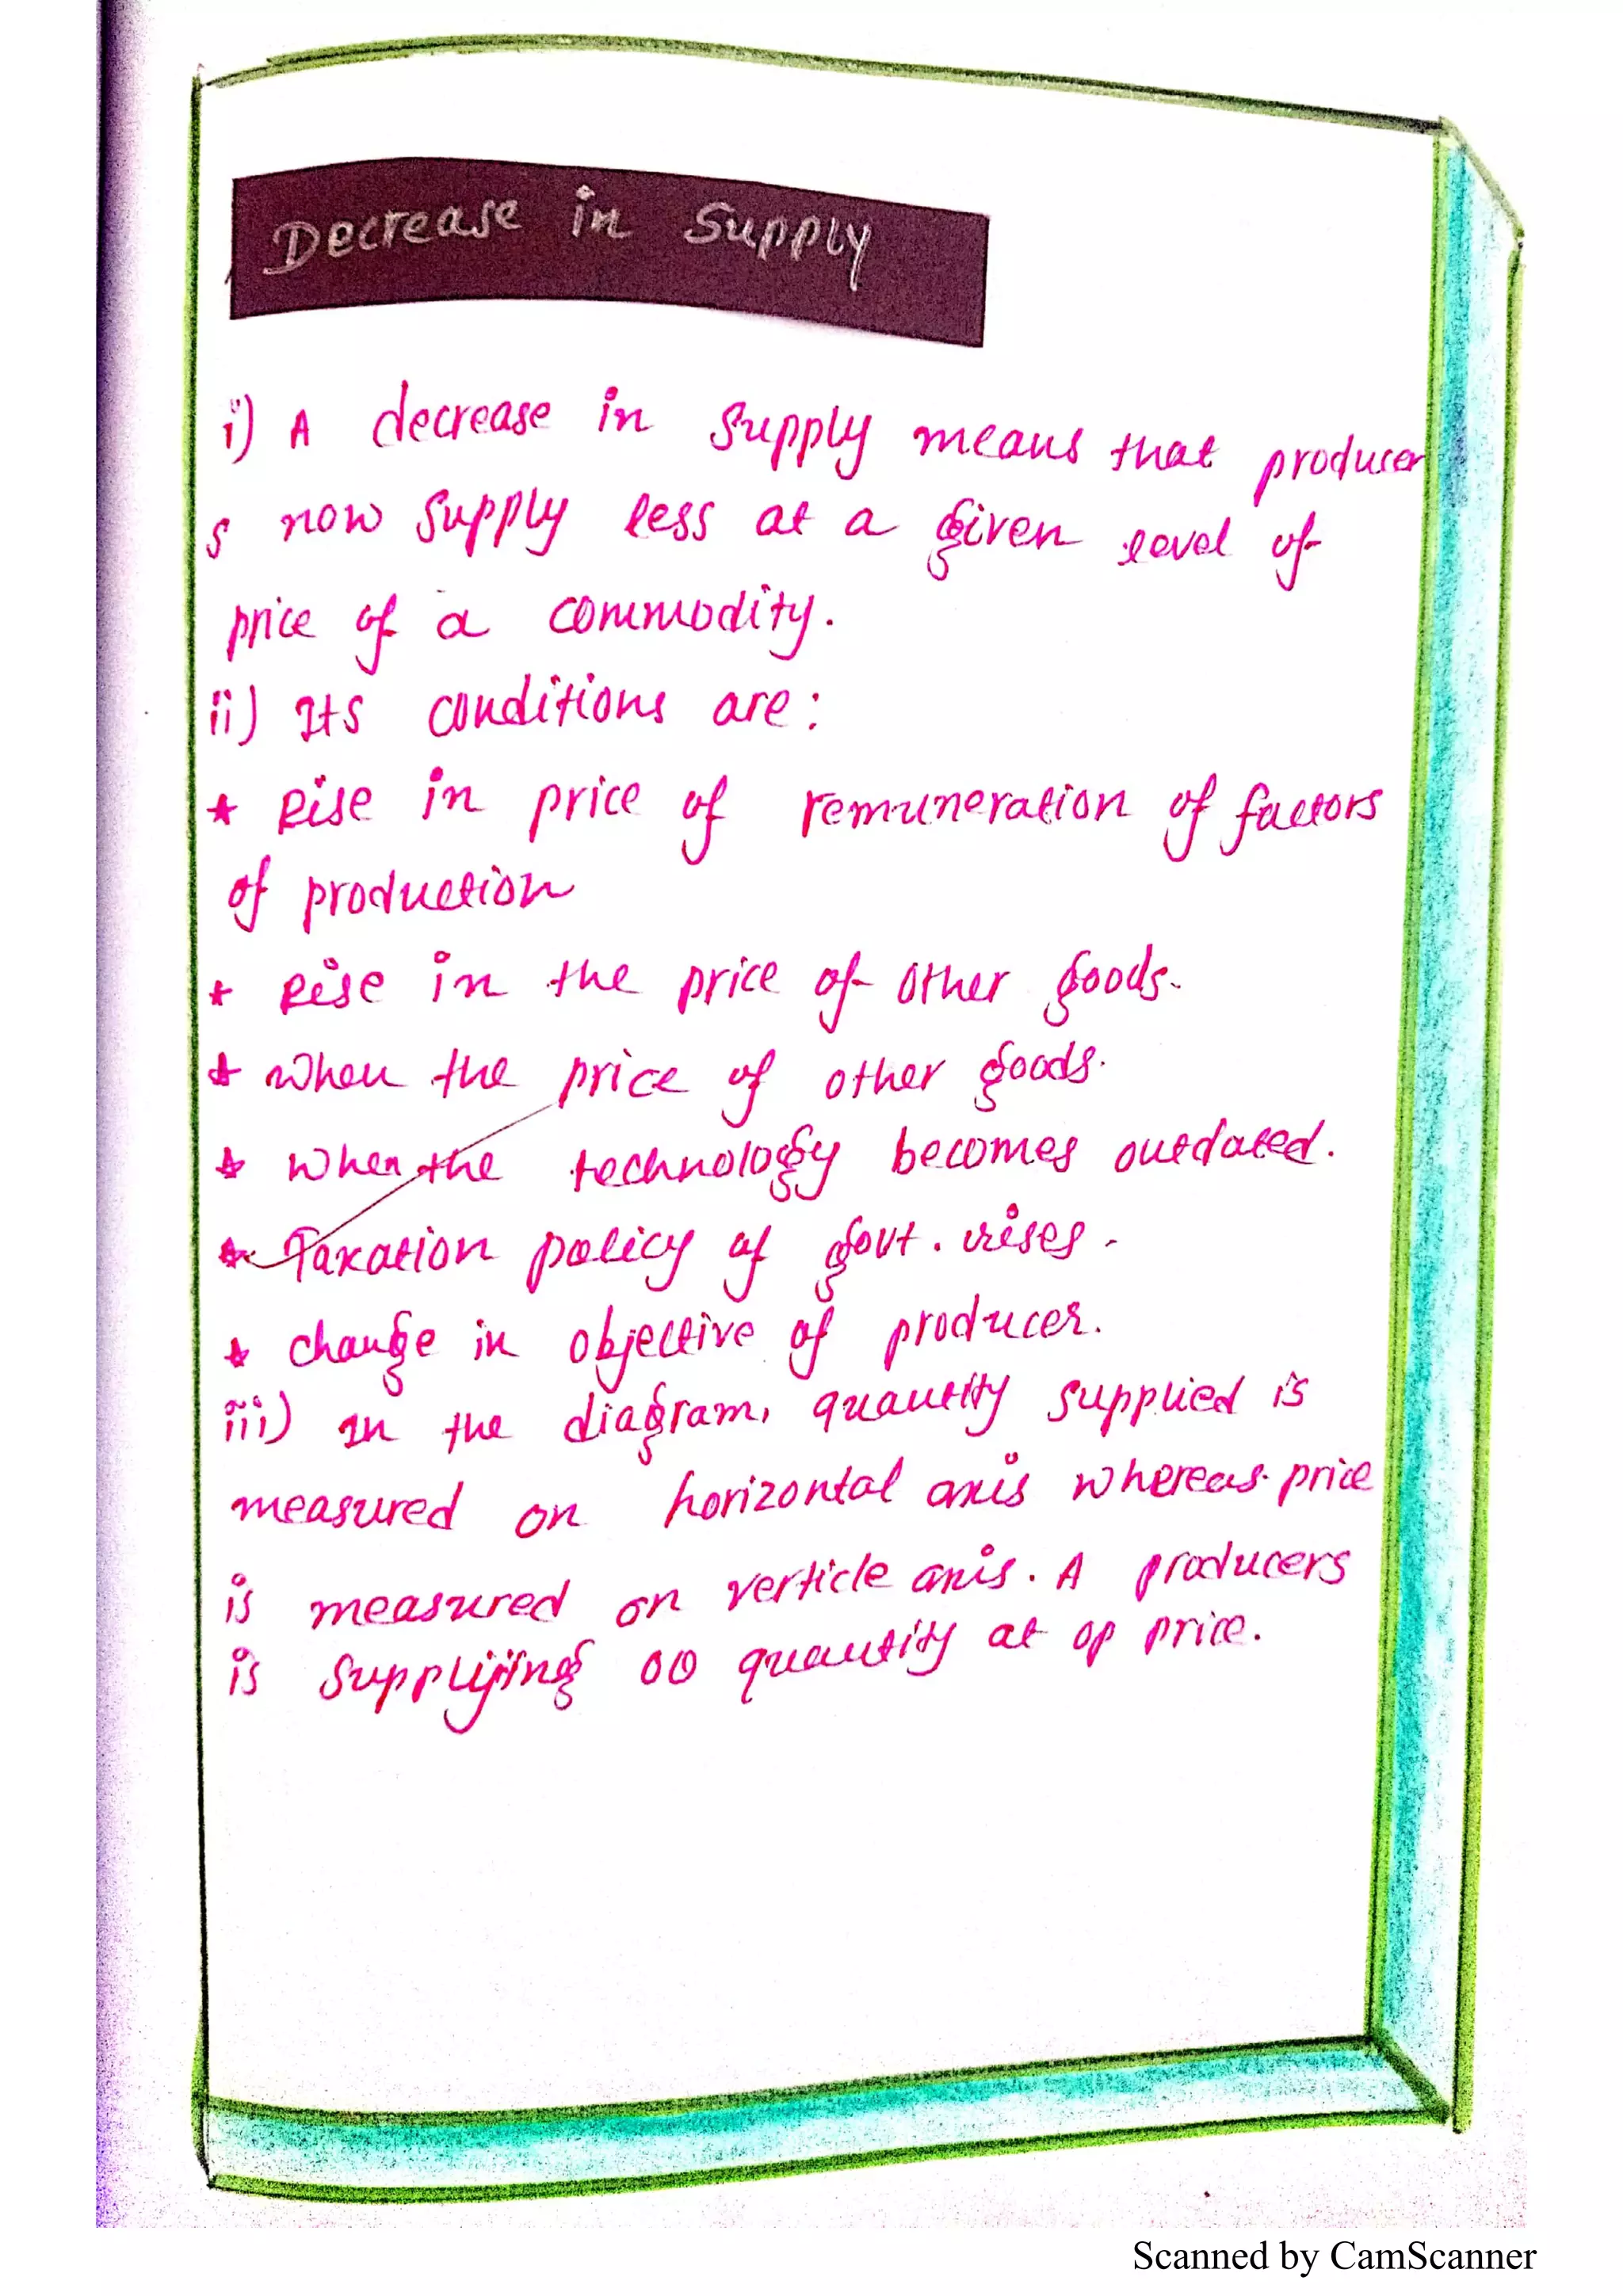 Decrease in Supply
i) A decrease in supply means that producer
s now supply less at a given level of
price of a commodity.
ii) Its conditions are:
* Rise in price of remuneration of factors
of production
* Rise in the price of other goods.
* When the price of other goods.
* When the technology becomes outdated.
* Taxation policy of govt. rises.
* change in objective of producer.
iii) In the diagram, quantity supplied is
measured on horizontal axis whereas price
is measured on verticle axis. A producers
is supplying OQ quantity at op price.
Scanned by CamScanner